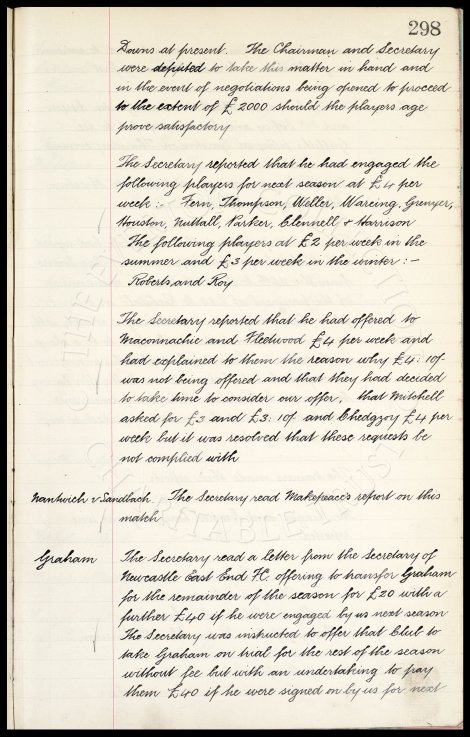 298
Downs at present. The Chairman and Secretary
were deputed to take this matter in hand and
in the event of negotiations being opened to proceed
to the extent of £2000 should the players age
prove satisfactory
The Secretary reported that he had engaged the
following players for next season at £4 per
week :- Fern, Thompson, Weller, Wareing, Grenyer,
Houston, Nuttall, Parker, Clennell & Harrison
The following players at £2 per week in the
summer and £3 per week in the winter :-
Roberts, and Roy
The Secretary reported that he had offered to
Maconnachie and Fleetwood £4 per week and
had explained to them the reason why £4:10/-
was not being offered and that they had decided
to take time to consider our offer, that Mitchell
asked for £3 and £3.10/- and Chedgzoy £4 per
week but it was resolved that these requests be
not complied with
Nantwich v Sandbach. The Secretary read Makepeace's report on this
match
Graham The Secretary read a letter from the Secretary of
Newcastle East End F.C. offering to transfer Graham
for the remainder of the season for £20 with a
further £40 if he were engaged by us next season
The Secretary was instructed to offer that Club to
take Graham on trial for the rest of the season
without fee but with an undertaking to pay
them £40 if he were signed on by us for next